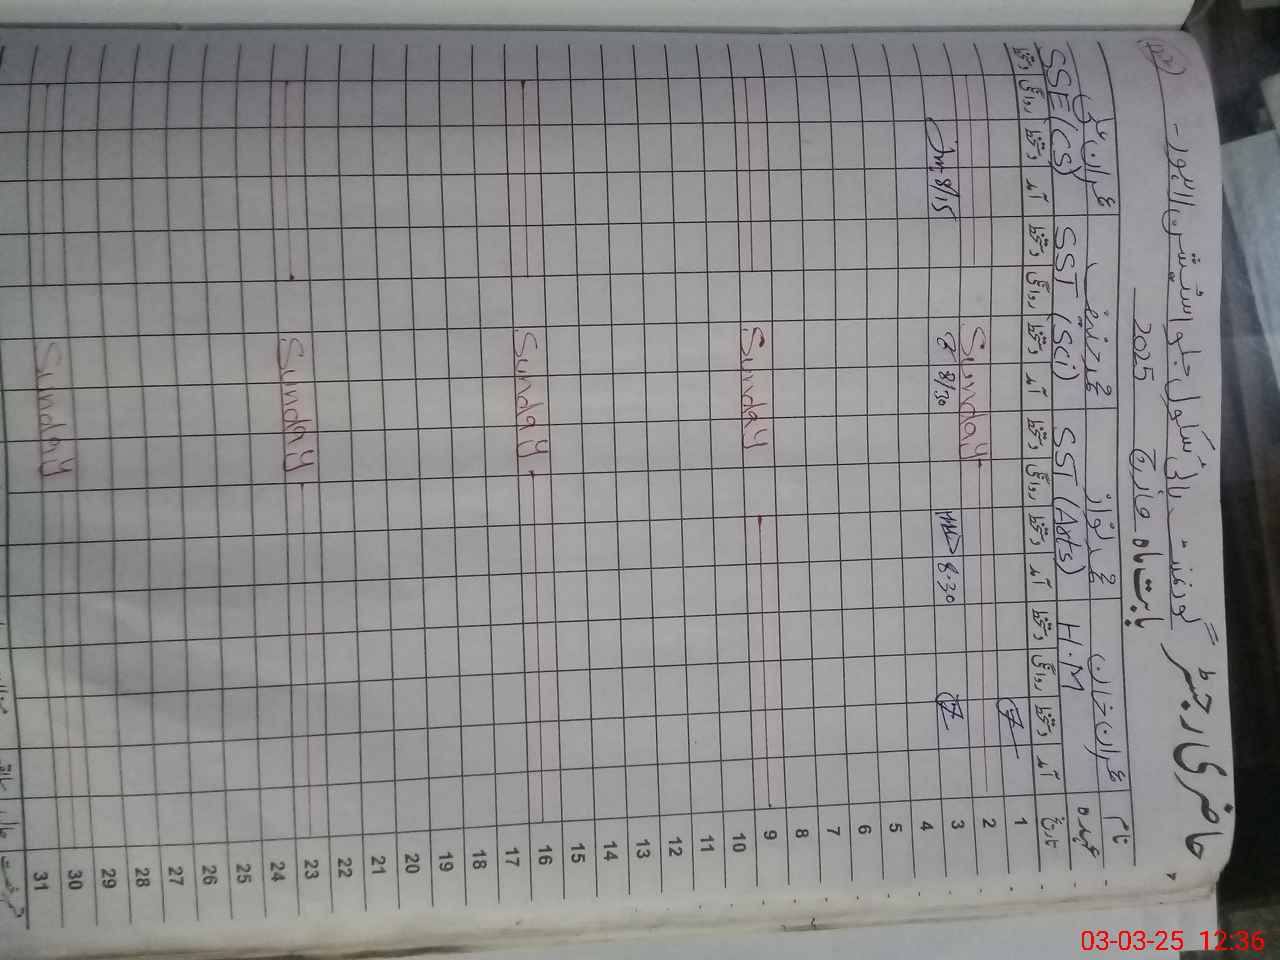 حاضری رجسٹر گورنمنٹ ہائی سکول
بابت ماہ مارچ 2025
نام عمران خان محمد نواز
عہدہ H.M SST (Arts) SST (Sci) SSE (CS)
تاریخ آمد دستخط روانگی دستخط آمد دستخط روانگی دستخط آمد دستخط روانگی دستخط آمد دستخط روانگی دستخط
1
2 Sunday
3 8:30 8/30 8/15
4
5
6
7
8
9 Sunday
10
11
12
13
14
15
16 Sunday
17
18
19
20
21
22
23 Sunday
24
25
26
27
28
29
30 Sunday
31
03-03-25 12:36